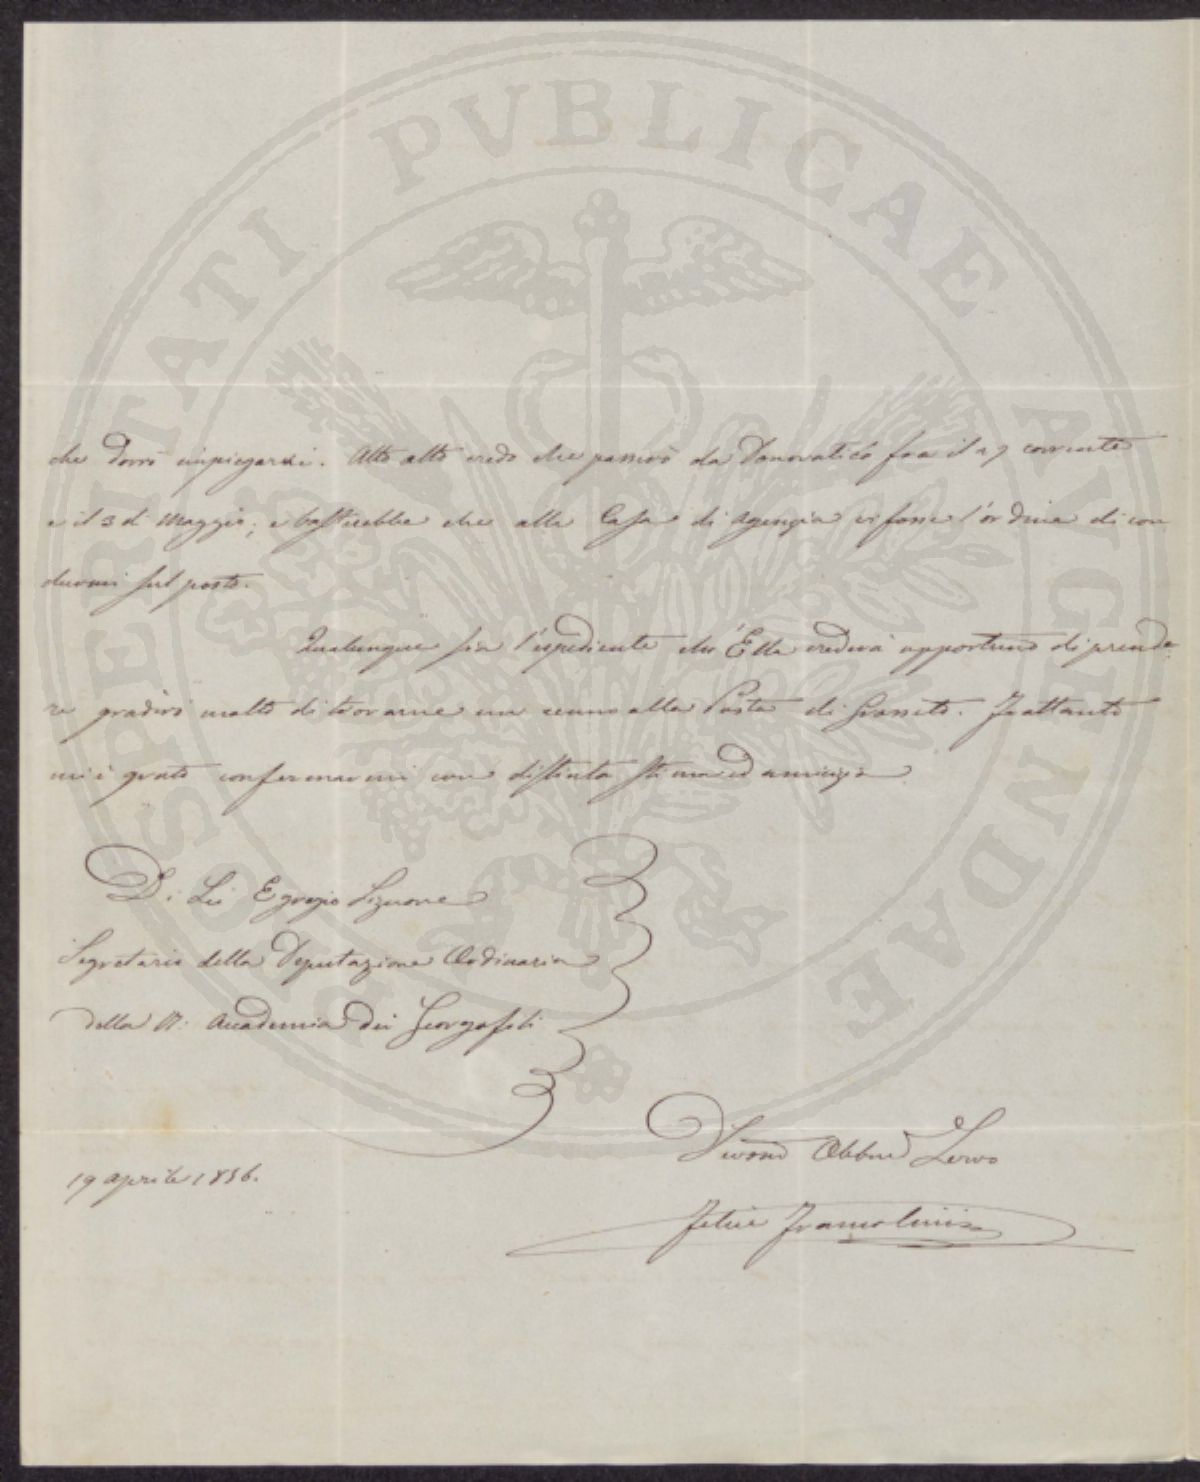 PROSPERITATI PUBLICAE AUGENDAE
che dovrò impiegarvi. Alto alto credo che passerò da Donoratico fra il 27 corrente
e il 3 di Maggio; e basterebbe che alla Casa di Agenzia vi fosse l'ordine di con
durmi sul posto.
Qualunque sia l'espediente ch'Ella crederà opportuno di prende
re gradirò molto di trovarne un cenno alla Posta di Grosseto. Frattanto
mi è grato confermarmi con distinta stima ed amicizia
Di Lei Egregio Signore
Segretario della Deputazione Ordinaria
della R. Accademia dei Georgofili
19 aprile 1856.
Devono Obbmo Servo
Felice Francolini